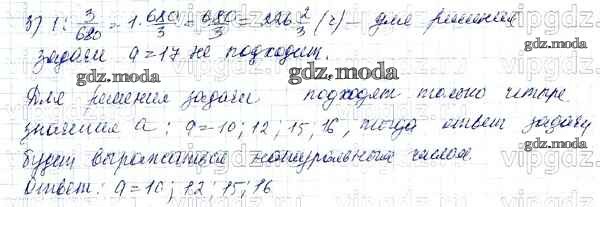 3) 1 : 3/680 = 1 · 680/3 = 680/3 = 226 2/3 (г) – для решения
задачи a = 17 не подходит.
Для решения задачи подходят только четыре
значения a: a = 10; 12; 15; 16, тогда ответ задачи
будет выражаться натуральным числом
Ответ: a = 10; 12; 15; 16
gdz.moda
gdz.moda
gdz.moda
gdz.moda
gdz.moda
gdz.moda
vipgdz
vipgdz
vipgdz
vipgdz